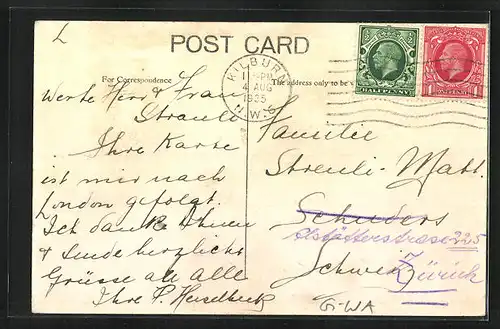 L
POST CARD
For Correspondence
The address only to be
KILBURN
4 AUG
1935
N.W.6
HALFPENNY
1 1
Werte Herr & Frau
Streuli
Ihre Karte
ist mir nach
London gefolgt.
Ich danke Ihnen
& sende herzliche
Grüsse an Alle
Ihre P.
Familie
Streuli-Matt.
225
Schweiz
Zürich
G-WA